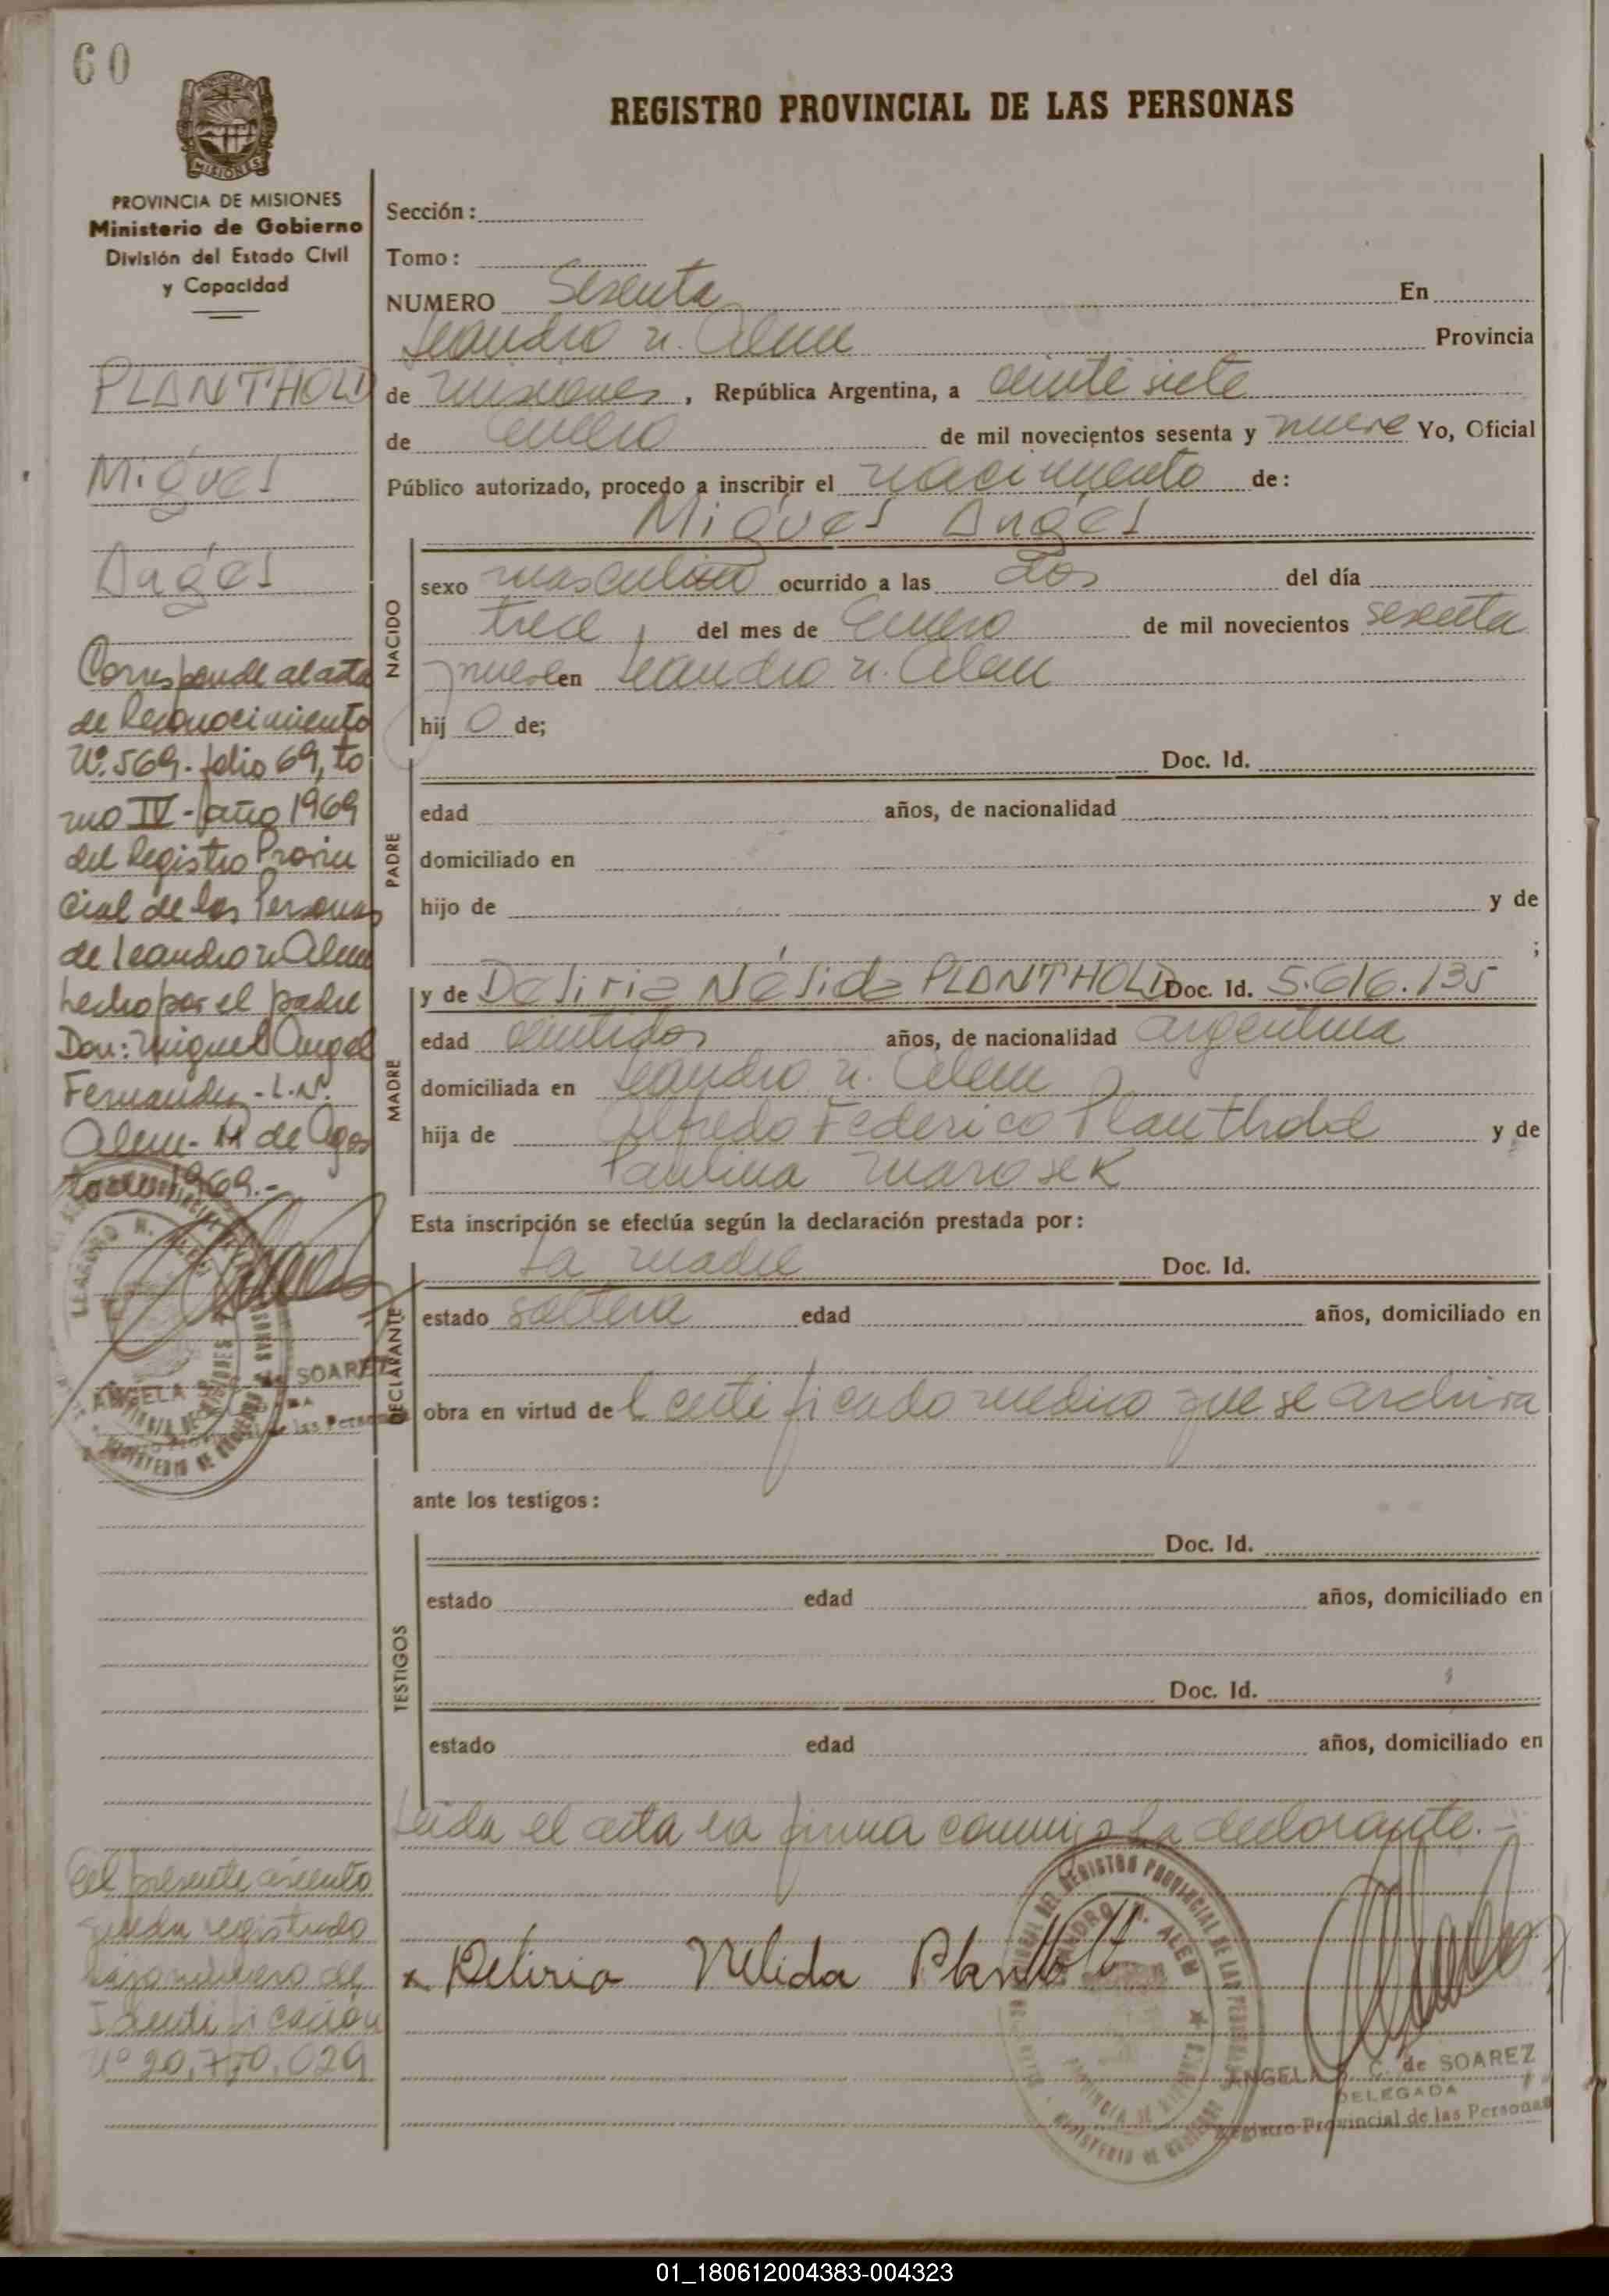 60
REGISTRO PROVINCIAL DE LAS PERSONAS
PROVINCIA DE MISIONES
Ministerio de Gobierno
División del Estado Civil
y Capacidad
PLANTHOLD
Miguel
Angel
Corresponde al acta
de Reconocimiento
Nº. 569 - folio 69, to
mo IV - año 1969
del Registro Provin
cial de las Personas
de Leandro N Alem
hecho por el padre
Don: Miguel Angel
Fernandez - L.N.
Alem - 11 de Agos
to 1969.-
ANGELA SOAREZ
Sección:
Tomo:
NUMERO Sesenta En
Leandro N. Alem Provincia
de Misiones, República Argentina, a veinte siete
de enero de mil novecientos sesenta y nueve Yo, Oficial
Público autorizado, procedo a inscribir el nacimiento de:
Miguel Angel
NACIDO
sexo masculino ocurrido a las dos del día
trece, del mes de Enero de mil novecientos sesenta
y nueve en Leandro N. Alem
hij o de;
PADRE
Doc. Id.
edad años, de nacionalidad
domiciliado en
hijo de y de
;
MADRE
y de Deliria Nélida PLANTHOLD Doc. Id. 5.616.135
edad veintidos años, de nacionalidad argentina
domiciliada en Leandro N. Alem
hija de Alfredo Federico Planthold y de
Paulina Marosek
Esta inscripción se efectúa según la declaración prestada por:
DECLARANTE
La madre Doc. Id.
estado soltera edad años, domiciliado en
obra en virtud de l certificado medico que se archiva
ante los testigos:
TESTIGOS
Doc. Id.
estado edad años, domiciliado en
Doc. Id.
estado edad años, domiciliado en
Leida el acta la firma conmigo la declarante.-
x Deliria Nelida Planthold
ANGELA C. de SOAREZ
DELEGADA
Registro Provincial de las Personas
El presente asiento
queda registrado
bajo número de
Identificación
Nº 20,770,029
01_180612004383-004323